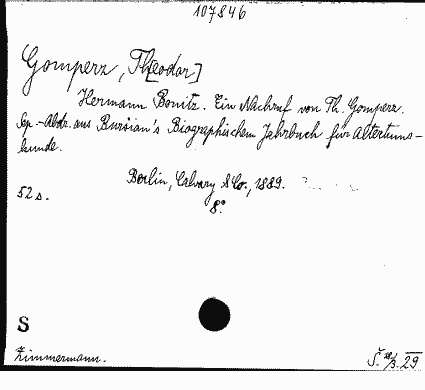 107846
Gomperz, Th[eodor]
Hermann Bonitz. Ein Nachruf von Th. Gomperz.
Sep.-Abdr. aus Bursian's Biographischem Jahrbuch für Altertums-
kunde.
Berlin, Calvary & Co., 1889.
52 s.
8°
S
Zimmermann.
Š. 28/3. 29